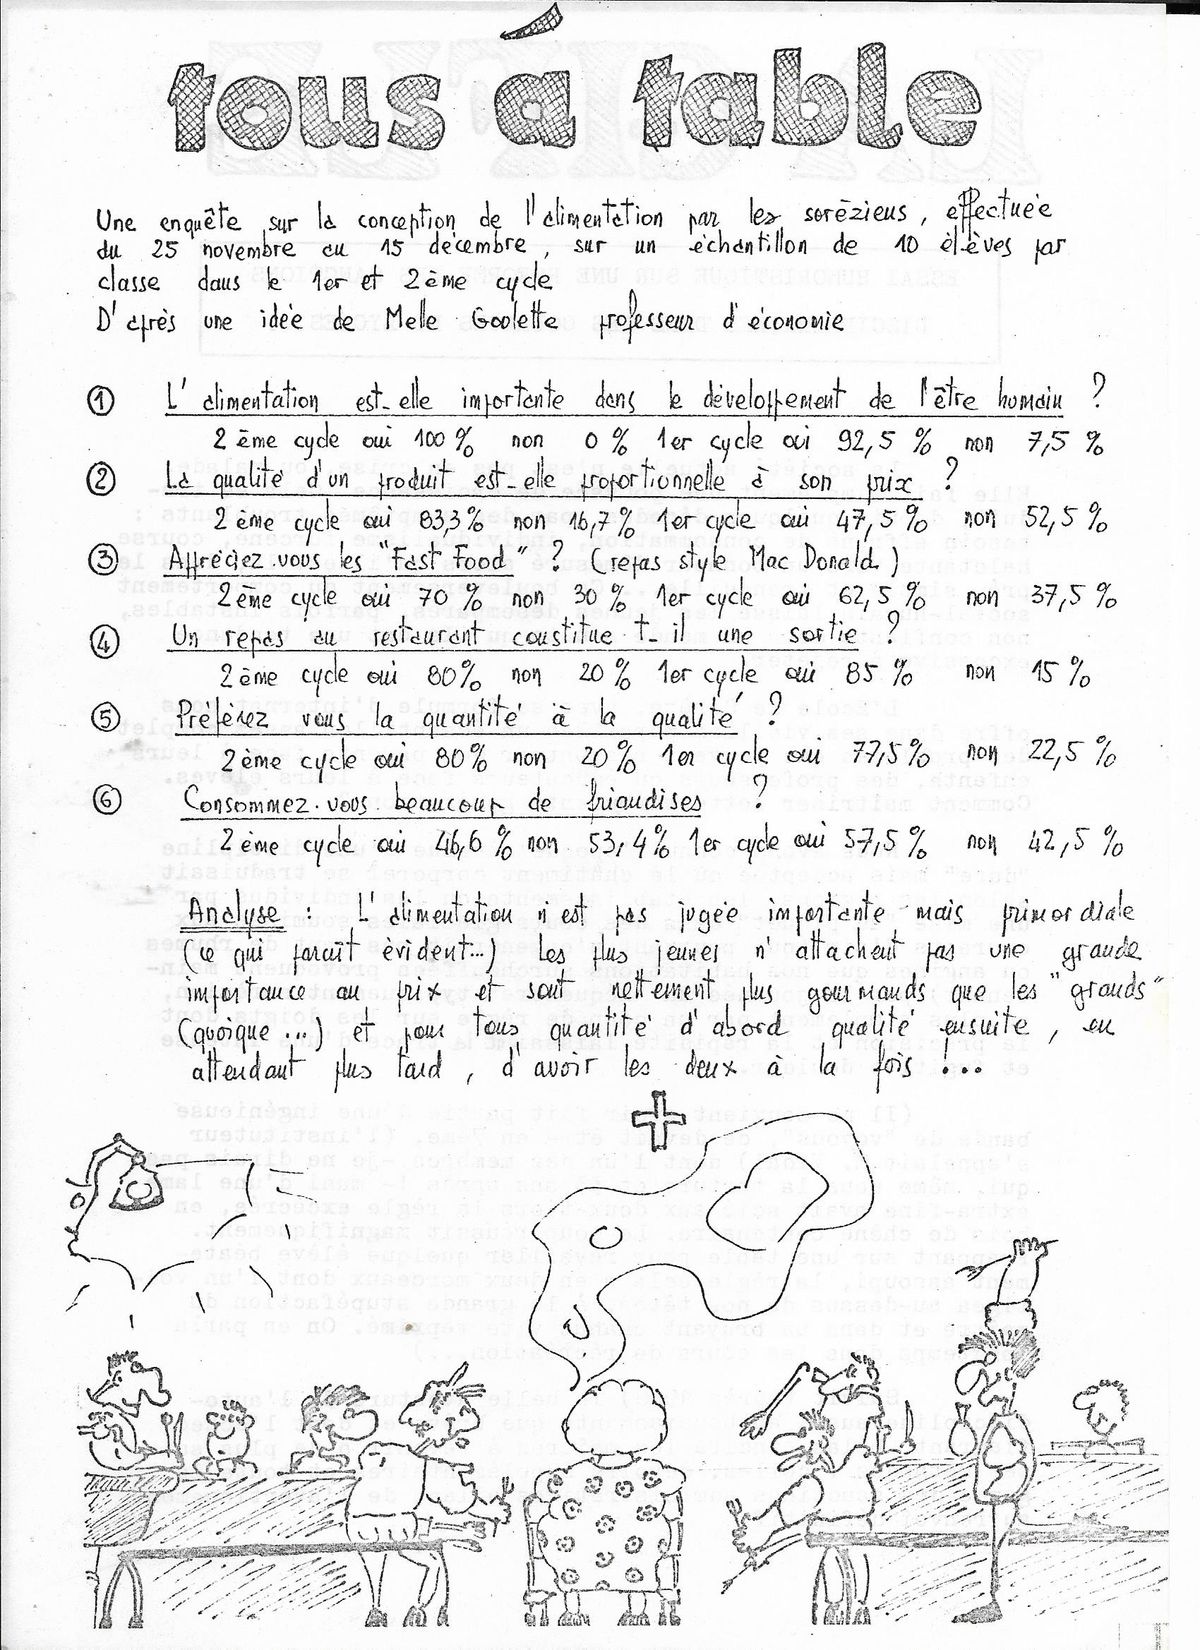 tous á table
Une enquête sur la conception de l'alimentation par les soréziens, effectuée
du 25 novembre au 15 décembre, sur un échantillon de 10 élèves par
classe dans le 1er et 2ème cycle
D'après une idée de Melle Goolette professeur d'économie
① L'alimentation est-elle importante dans le développement de l'être humain ?
2ème cycle oui 100% non 0% 1er cycle oui 92,5 % non 7,5 %
② La qualité d'un produit est-elle proportionnelle à son prix ?
2ème cycle oui 83,3% non 16,7% 1er cycle oui 47,5% non 52,5%
③ Appréciez-vous les "Fast Food" ? (repas style Mac Donald)
2ème cycle oui 70 % non 30 % 1er cycle oui 62,5% non 37,5 %
④ Un repas au restaurant constitue t-il une sortie ?
2ème cycle oui 80% non 20 % 1er cycle oui 85 % non 15 %
⑤ Préférez vous la quantité à la qualité ?
2ème cycle oui 80% non 20% 1er cycle oui 77,5% non 22,5 %
⑥ Consommez-vous beaucoup de friandises ?
2ème cycle oui 46,6 % non 53,4% 1er cycle oui 57,5% non 42,5 %
Analyse : L'alimentation n'est pas jugée importante mais primordiale
(ce qui paraît évident...) Les plus jeunes n'attachent pas une grande
importance au prix et sont nettement plus gourmands que les "grands"
(quoique ...) et pour tous quantité d'abord qualité ensuite, en
attendant plus tard, d'avoir les deux à la fois !...